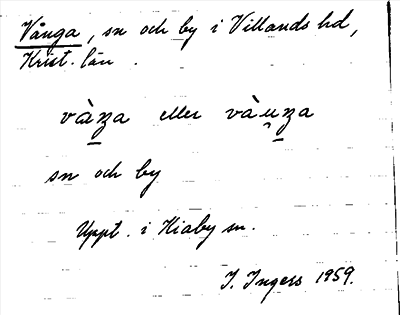 Vånga, sn och by i Villands hd,
Krist. län.
vàꞑa eller vàu̯ꞑa
sn och by
Uppt. i Kiaby sn.
I. Ingers 1959.